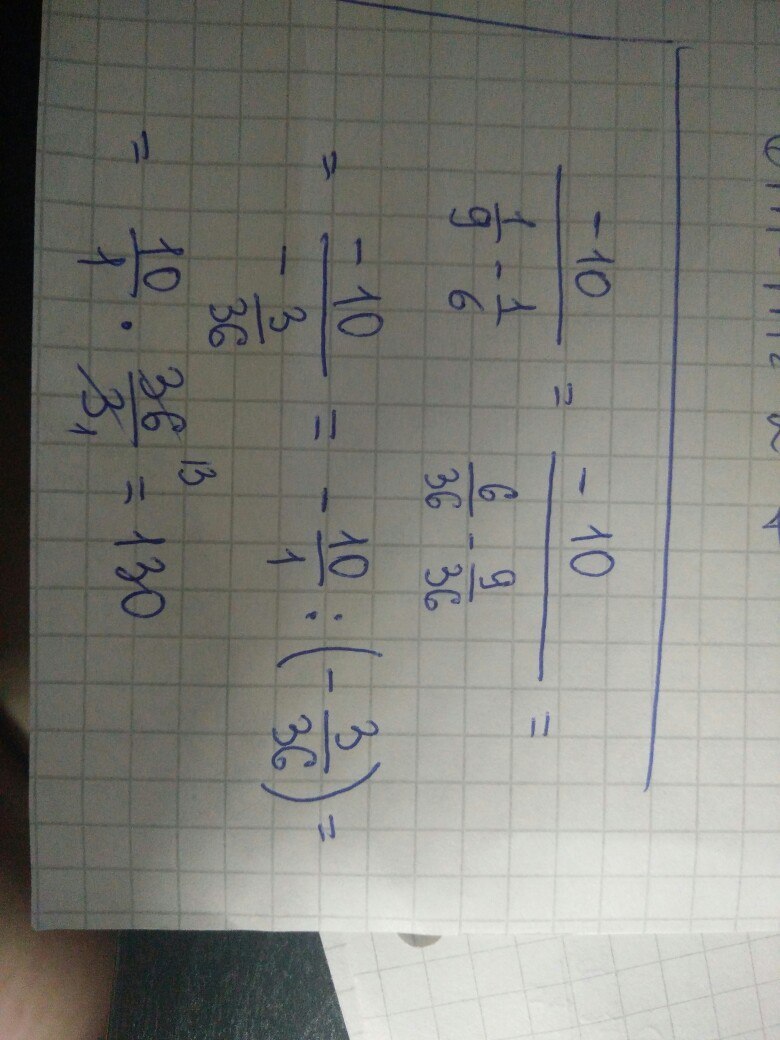 -10 / (1/9 - 1/6) = -10 / (6/36 - 9/36) =
= -10 / (- 3/36) = - 10/1 : (- 3/36) =
= 10/1 · 36 13/3 1 = 130